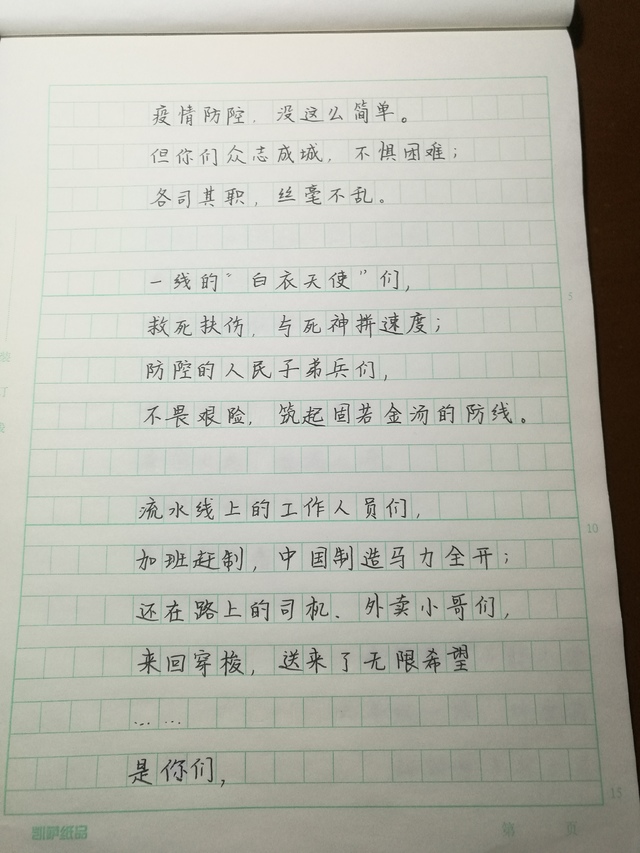 疫情防控，没这么简单。
但你们众志成城，不惧困难；
各司其职，丝毫不乱。
一线的“白衣天使”们，
救死扶伤，与死神拼速度；
防控的人民子弟兵们，
不畏艰险，筑起固若金汤的防线。
流水线上的工作人员们，
加班赶制，中国制造马力全开；
还在路上的司机、外卖小哥们，
来回穿梭，送来了无限希望
……
是你们，
5
10
15
装
订
凯萨纸品
第 页